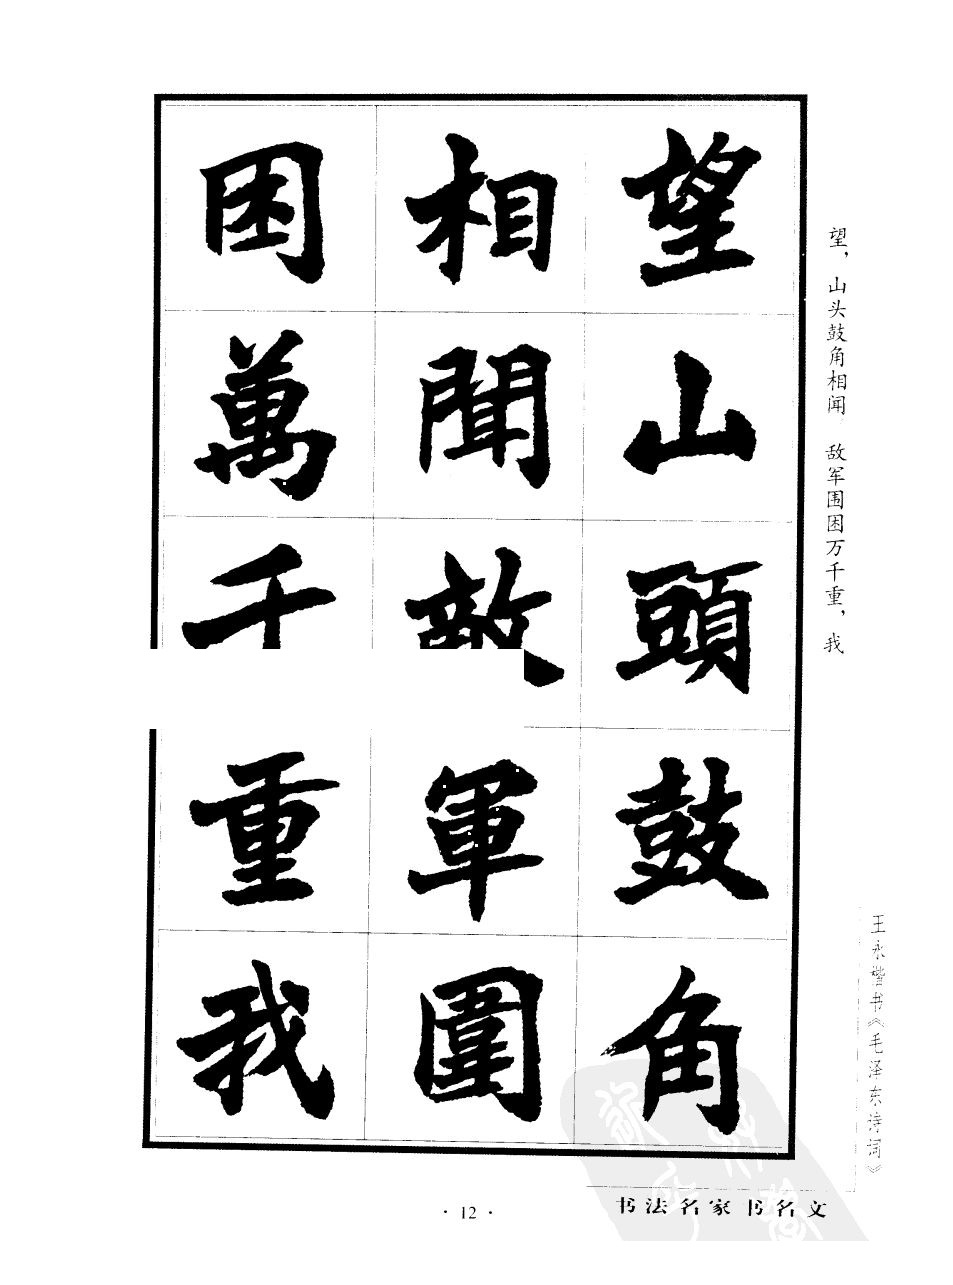 望山頭鼓角
相聞敵軍圍
困萬千重我
望，山头鼓角相闻　敌军围困万千重，我
王永楷书《毛泽东诗词》
书法名家书名文
· 12 ·